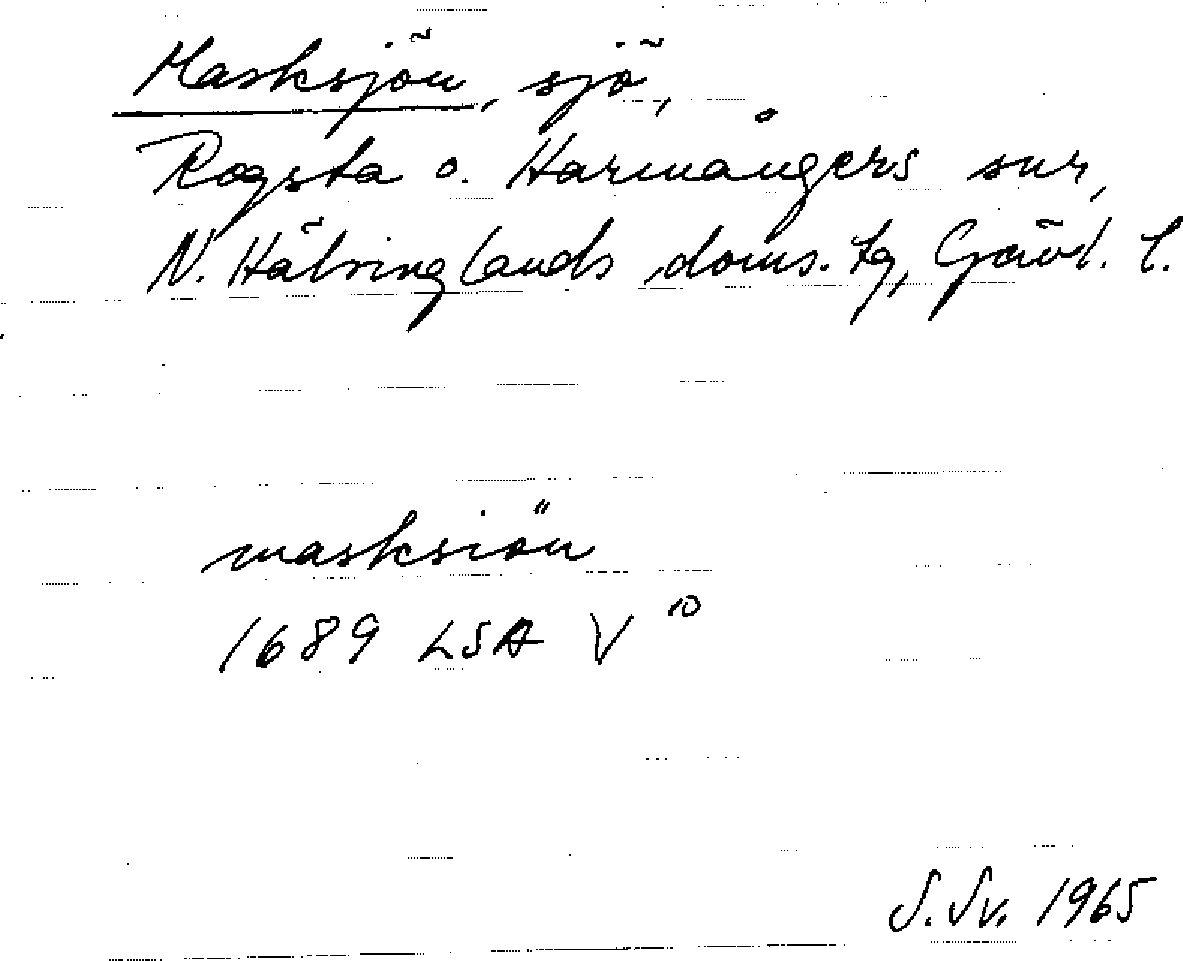 Masksjön, sjö,
Rogsta o. Harmångers snr,
N. Hälsinglands doms. tg, Gävl. l.
masksiön
1689 LSA V 10
S. Sv. 1965